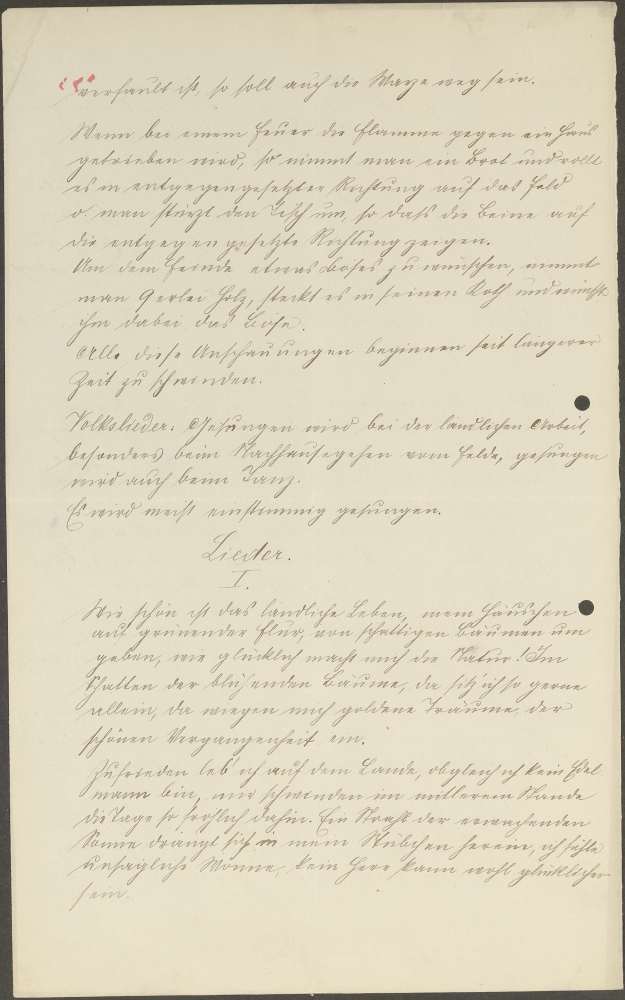 verfault ist, so soll auch die Warze weg sein.
Wenn bei einem Feuer die Flamme gegen ein Haus
getrieben wird, so nimmt man ein Brot und rollt
es in entgegengesetzter Richtung auf das Feld
o. man stürzt den Tisch um, so daß die Beine auf
die entgegengesetzte Richtung zeigen.
Um dem Feinde etwas Böses zu wünschen, nimmt
man 9erlei Holz, steckt es in seinen Koth und wünscht
ihm dabei das Böse.
Alle diese Anschauungen beginnen seit längerer
Zeit zu schwinden.
Volkslieder. Gesungen wird bei der ländlichen Arbeit,
besonders beim Nachhausegehen vom Felde, gesungen
wird auch beim Tanz.
Es wird meist einstimmig gesungen.
Lieder.
I.
Wie schön ist das ländliche Leben, mein Häuschen
auf grünender Flur, von schattigen Bäumen um
geben, wie glücklich macht mich die Natur! Im
Schatten der blühenden Bäume, da sitz' ich so gerne
allein, da wiegen mich goldene Träume der
schönen Vergangenheit ein.
Zufrieden leb' ich auf dem Lande, obgleich ich kein Edel
mann bin, mir schwinden im mittleren Stande
die Tage so fröhlich dahin. Ein Strahl der erwachenden
Sonne drängt sich in mein Stübchen herein, ich fühle
unsägliche Wonne, kein Herr kann wohl glücklicher
sein.